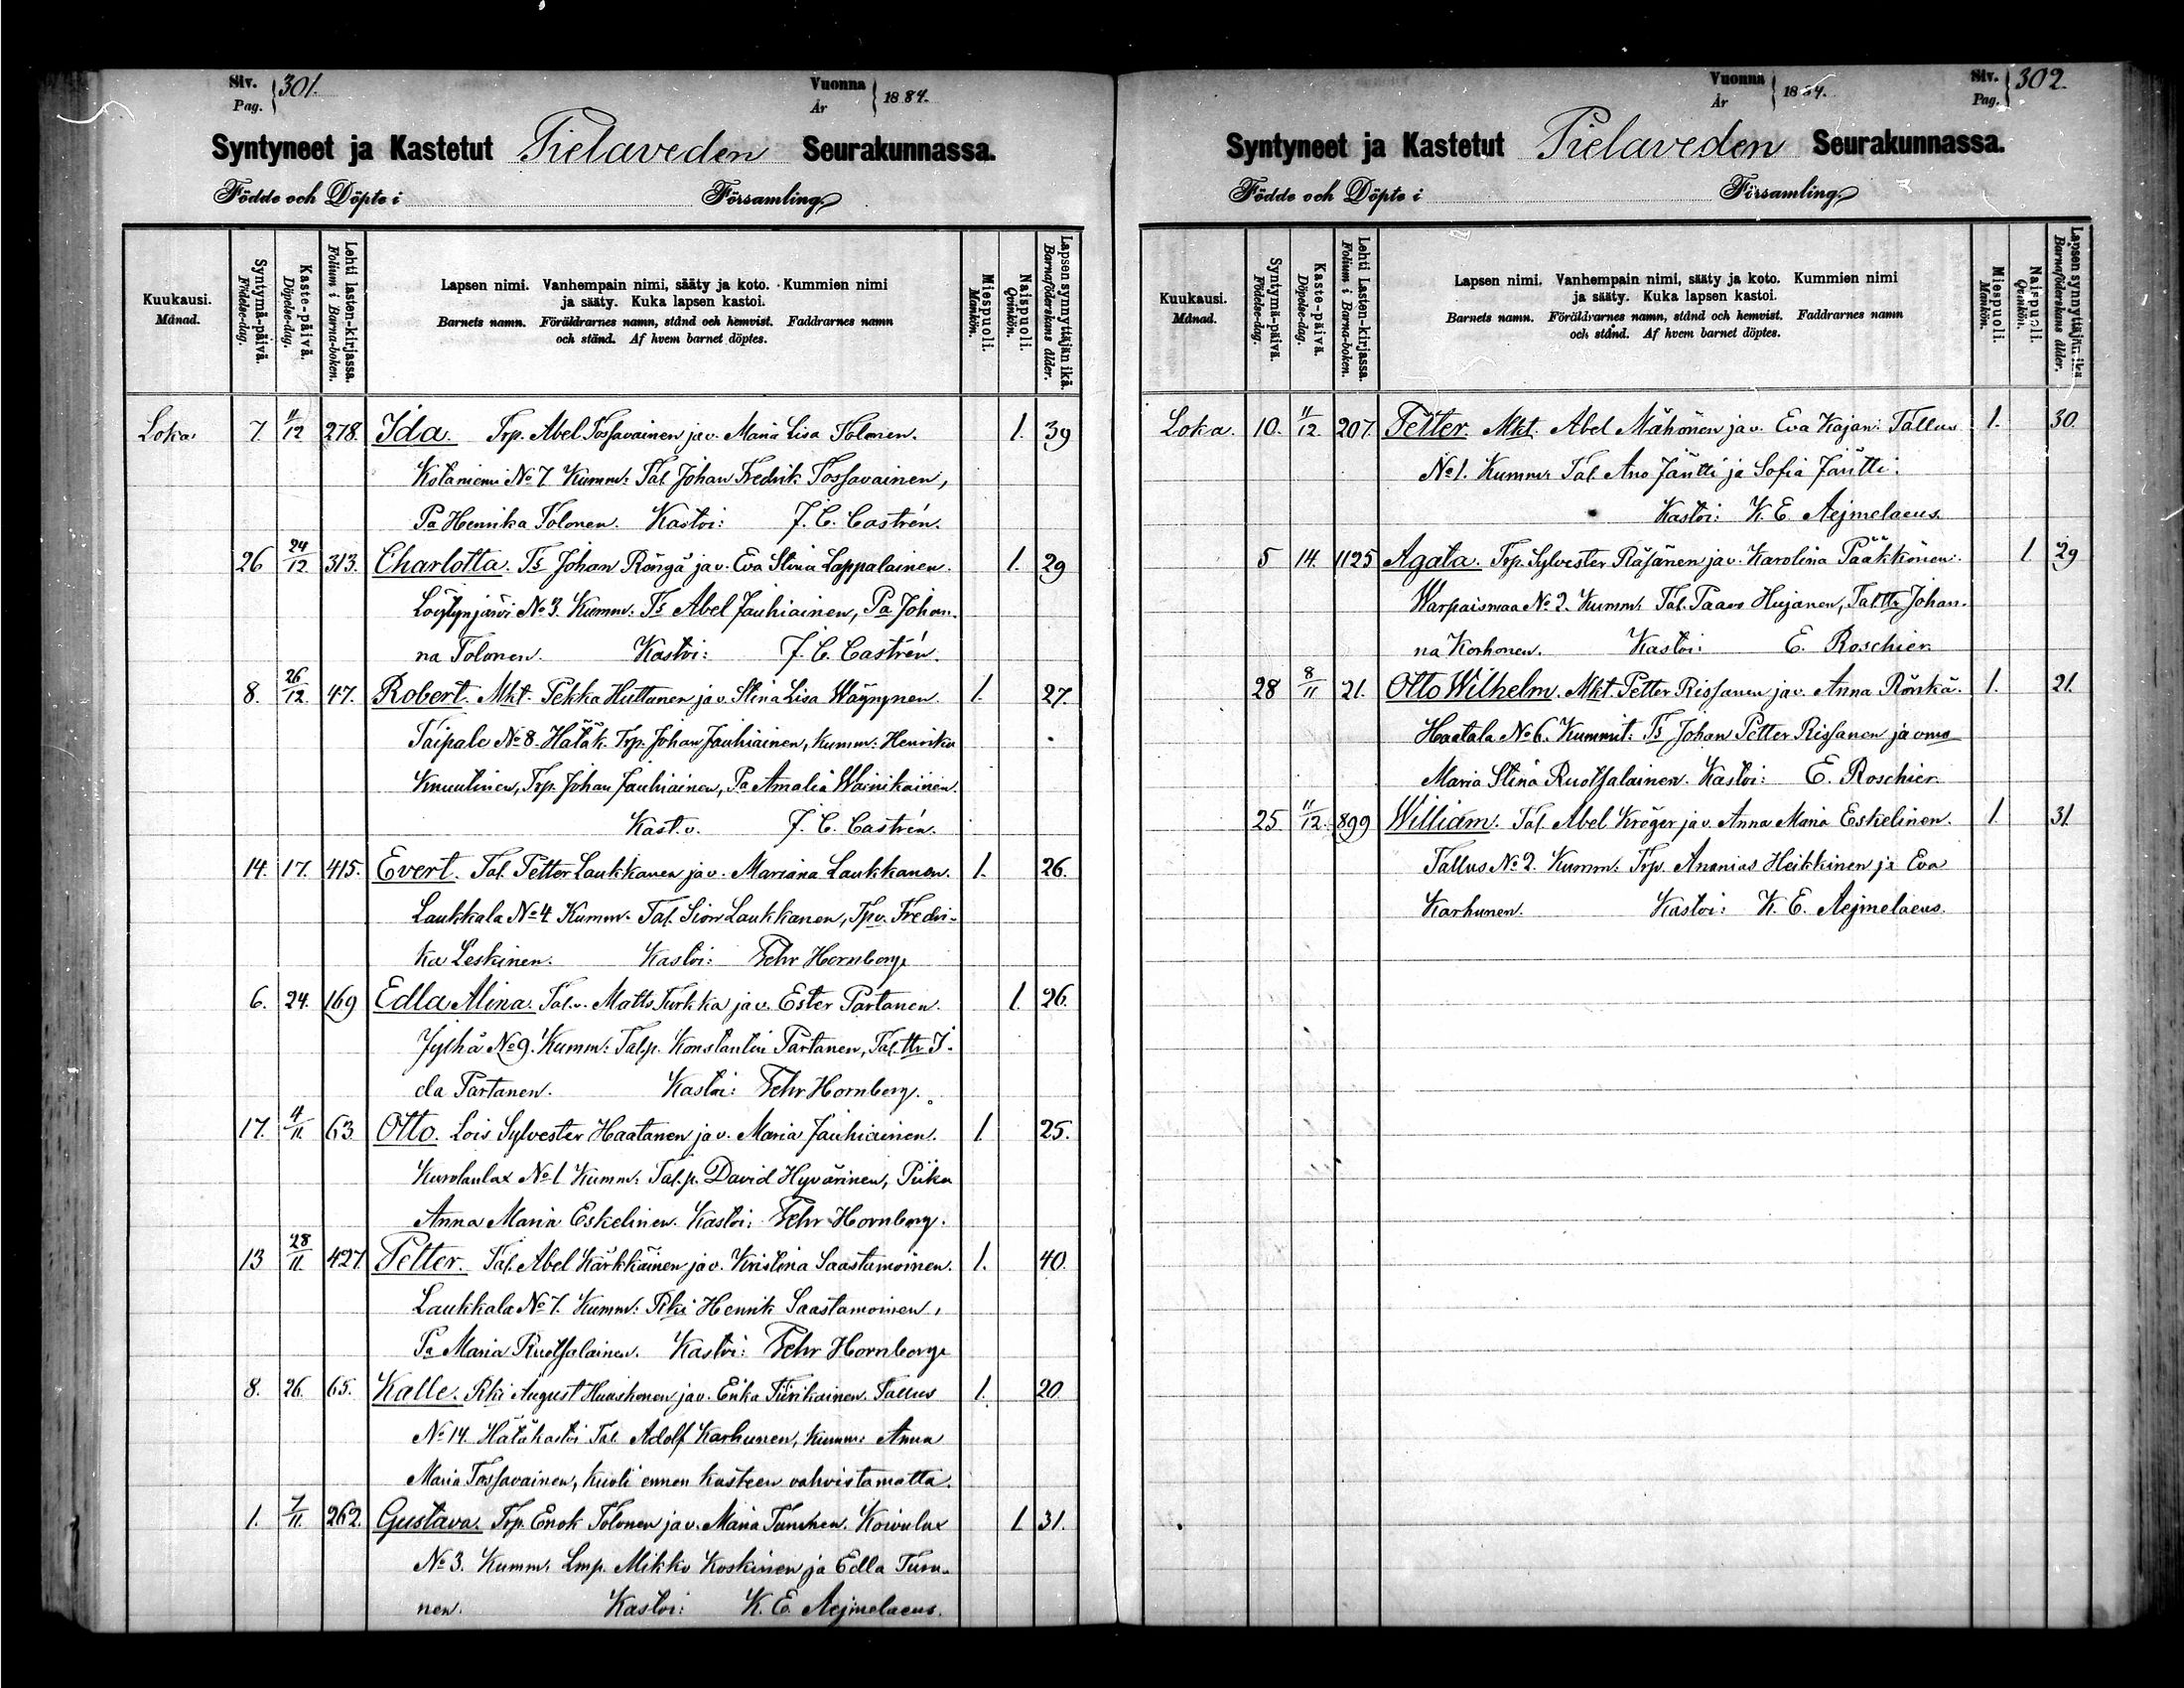 Siv. Pag. 301.
Vuonna År 1884.
Syntyneet ja Kastetut Pielaveden Seurakunnassa.
Födde och Döpte i Församling.
Kuukausi. Månad.
Syntymä-päivä. Födelse-dag.
Kaste-päivä. Döpelse-dag.
Lehti lasten-kirjassa. Folium i Barna-boken.
Lapsen nimi. Vanhempain nimi, sääty ja koto. Kummien nimi
ja sääty. Kuka lapsen kastoi.
Barnets namn. Föräldrarnes namn, stånd och hemvist. Faddrarnes namn
och stånd. Af hvem barnet döptes.
Miespuoli. Mankön.
Naispuoli. Qvinkön.
Lapsen synnyttäjän ikä. Barnaföderskans ålder.
Loka. 7. 11/12 278. Ida. Trp. Abel Tossavainen ja v. Maria Lisa Tolonen. 1. 39
Kotaniemi No 7. Kumm: Tal. Johan Fredrik Tossavainen,
Pa Henrika Tolonen. Kastoi: J. C. Castrén.
26 24/12 313. Charlotta. Ts Johan Röngä ja v. Eva Stina Lappalainen. 1. 29
Löytynjärvi No 3. Kumm: Ts Abel Jauhiainen, Pa Johan-
na Tolonen. Kastoi: J. C. Castrén.
8. 26/12 47. Robert. Mkt. Pekka Huttunen ja v. Stina Lisa Wäyrynen. 1. 27.
Taipale No 8. Hätäk. Trp. Johan Jauhiainen, Kumm: Henrika
Knuutinen, Trp. Johan Jauhiainen, Pa Amalia Wainikainen.
Kast. v. J. C. Castrén.
14. 17. 415. Evert. Tal. Petter Laukkanen ja v. Mariana Laukkanen. 1. 26.
Laukkala No 4. Kumm. Tal. Sion Laukkanen, Tpv. Fredri-
ka Leskinen. Kastoi: Fehr Hornborg
6. 24. 169 Edla Alina. Tal.v. Matts Turkka ja v. Ester Partanen. 1. 26.
Jylhä No 9. Kumm: Talp. Konstantin Partanen, Tal. ttr I-
da Partanen. Kastoi: Fehr Hornborg.
17. 4/11. 63 Otto. Lois Sylvester Haatanen ja v. Maria Jauhiainen. 1. 25.
Kurolanlax No 1. Kumm: Tal.p. David Hyvärinen, Piika
Anna Maria Eskelinen. Kastoi: Fehr Hornborg.
13 28/11. 427 Petter. Tal. Abel Kärkkäinen ja v. Kristina Saastamoinen. 1. 40.
Laukkala No 7. Kumm: Rki Henrik Saastamoinen,
Pa Maria Ruotsalainen. Kastoi: Fehr Hornborg
8. 26. 65. Kalle. Rki August Huuskonen ja v. Erika Tiirikainen. Tallus 1. 20
No 14. Hätäkastoi Tal. Adolf Karhunen, kumm: Anna
Maria Tossavainen, kuoli ennen kasteen vahvistamatta.
1. 7/11. 262. Gustava. Trp. Enok Tolonen ja v. Maria Turunen. Koivulax 1. 31.
No 3. Kumm: Lmp. Mikko Koskinen ja Edla Turu-
nen. Kastoi: K. E. Aejmelaeus.
Vuonna År 1884.
Siv. Pag. 302.
Syntyneet ja Kastetut Pielaveden Seurakunnassa.
Födde och Döpte i Församling.
Kuukausi. Månad.
Syntymä-päivä. Födelse-dag.
Kaste-päivä. Döpelse-dag.
Lehti Lasten-kirjassa. Folium i Barna-boken.
Lapsen nimi. Vanhempain nimi, sääty ja koto. Kummien nimi
ja sääty. Kuka lapsen kastoi.
Barnets namn. Föräldrarnes namn, stånd och hemvist. Faddrarnes namn
och stånd. Af hvem barnet döptes.
Miespuoli. Mankön.
Naispuoli. Qvinkön.
Lapsen synnyttäjän ikä Barnaföderskans ålder.
Loka. 10. 11/12. 207. Petter. Mkt. Abel Mähönen ja v. Eva Kajan: Tallus 1. 30.
No 1. Kumm: Tal. Ano Jäntti ja Sofia Jäntti.
Kastoi: K. E. Aejmelaeus.
5 14. 1125 Agata. Trp. Sylvester Räsänen ja v. Karolina Pääkkönen: 1. 29
Warpaismaa No 2. Kumm: Tal. Paavo Hujanen, Tal. ttr Johan-
na Korhonen. Kastoi: E. Roschier.
28 8/11 21. Otto Wilhelm. Mkt. Petter Rissanen ja v. Anna Rönkä. 1. 21.
Haatala No 6. Kummit: Ts Johan Petter Rissanen ja vmo
Maria Stina Ruotsalainen. Kastoi: E. Roschier.
25. 11/12. 899 William. Tal. Abel Kröger ja v. Anna Maria Eskelinen. 1. 31.
Tallus No 2. Kumm: Trp. Ananias Heikkinen ja Eva
Karhunen. Kastoi: K. E. Aejmelaeus.